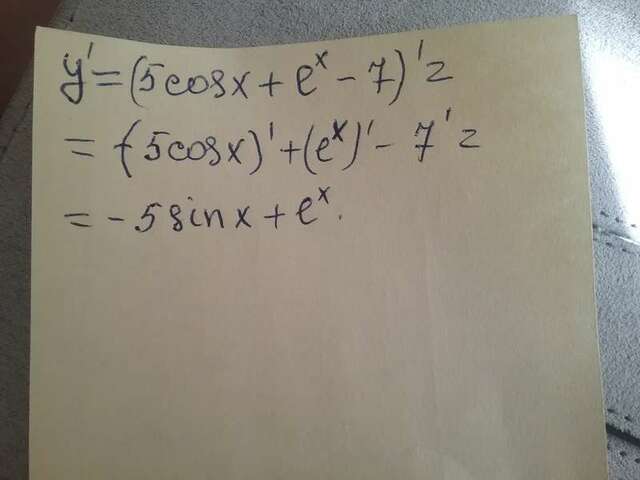 y' = (5cosx + e^x - 7)' =
= (5cosx)' + (e^x)' - 7' =
= - 5sinx + e^x.